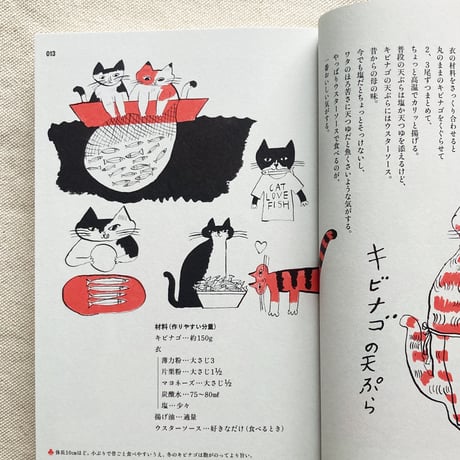 013
CAT
LOVE
FISH
材料(作りやすい分量)
キビナゴ…約150g
衣
薄力粉…大さじ3
片栗粉…大さじ1½
マヨネーズ…大さじ½
炭酸水…75〜80㎖
塩…少々
揚げ油…適量
ウスターソース…好きなだけ(食べるとき)
体長10cmほど。小ぶりで骨ごと食べやすいうえ、冬のキビナゴは脂がのってより旨い。
衣の材料をさっくり合わせると
丸のままのキビナゴをくぐらせて
2、3尾ずつまとめて、
ちょっと高温でカリッと揚げる。
普段の天ぷらは塩か天つゆを添えるけど、
キビナゴの天ぷらにはウスターソース。
昔からの母の味。
今でも塩だとちょっとそっけないし、
ワタのほろ苦さに天つゆだと魚くさいような気がする。
やっぱりウスターソースで食べるのが、
一番おいしい気がする。
キビナゴの天ぷら